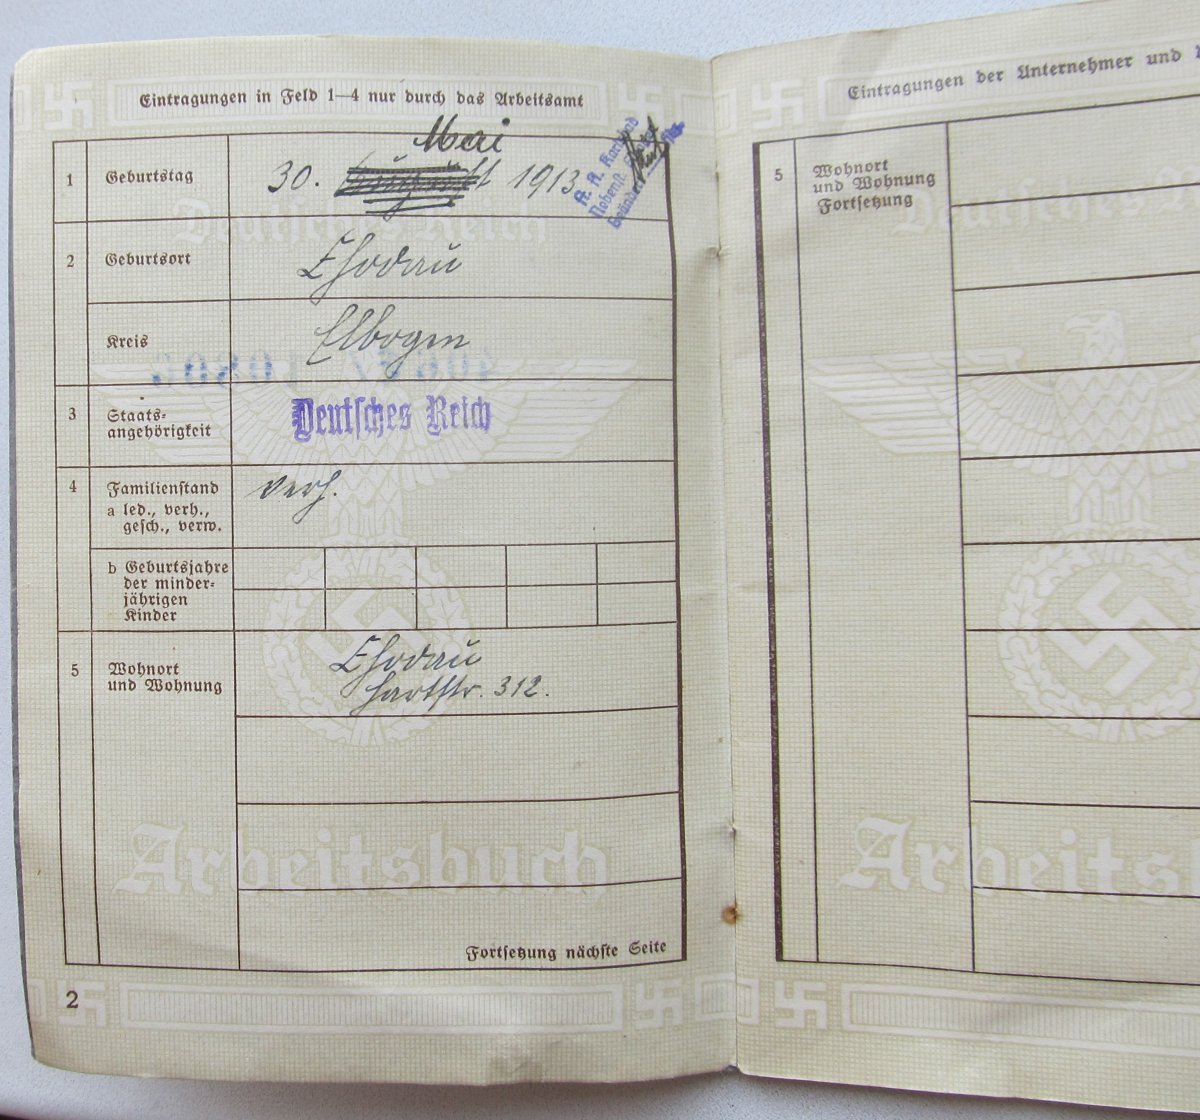 Eintragungen in Feld 1—4 nur durch das Arbeitsamt
Mai
1 Geburtstag 30. August 1913
A. A. Karlsbad
Nebenst.
Deutsches Reich
2 Geburtsort Chodau
Kreis Elbogen
3 Staats-
angehörigkeit
Deutsches Reich
4 Familienstand verh.
a led., verh.,
gesch., verw.
b Geburtsjahre
der minder-
jährigen
Kinder
5 Wohnort
und Wohnung
Chodau
Hartstr. 312.
Arbeitsbuch
Fortsetzung nächste Seite
2
Eintragungen der Unternehmer und
5 Wohnort
und Wohnung
Fortsetzung
Deutsches
Arbeits